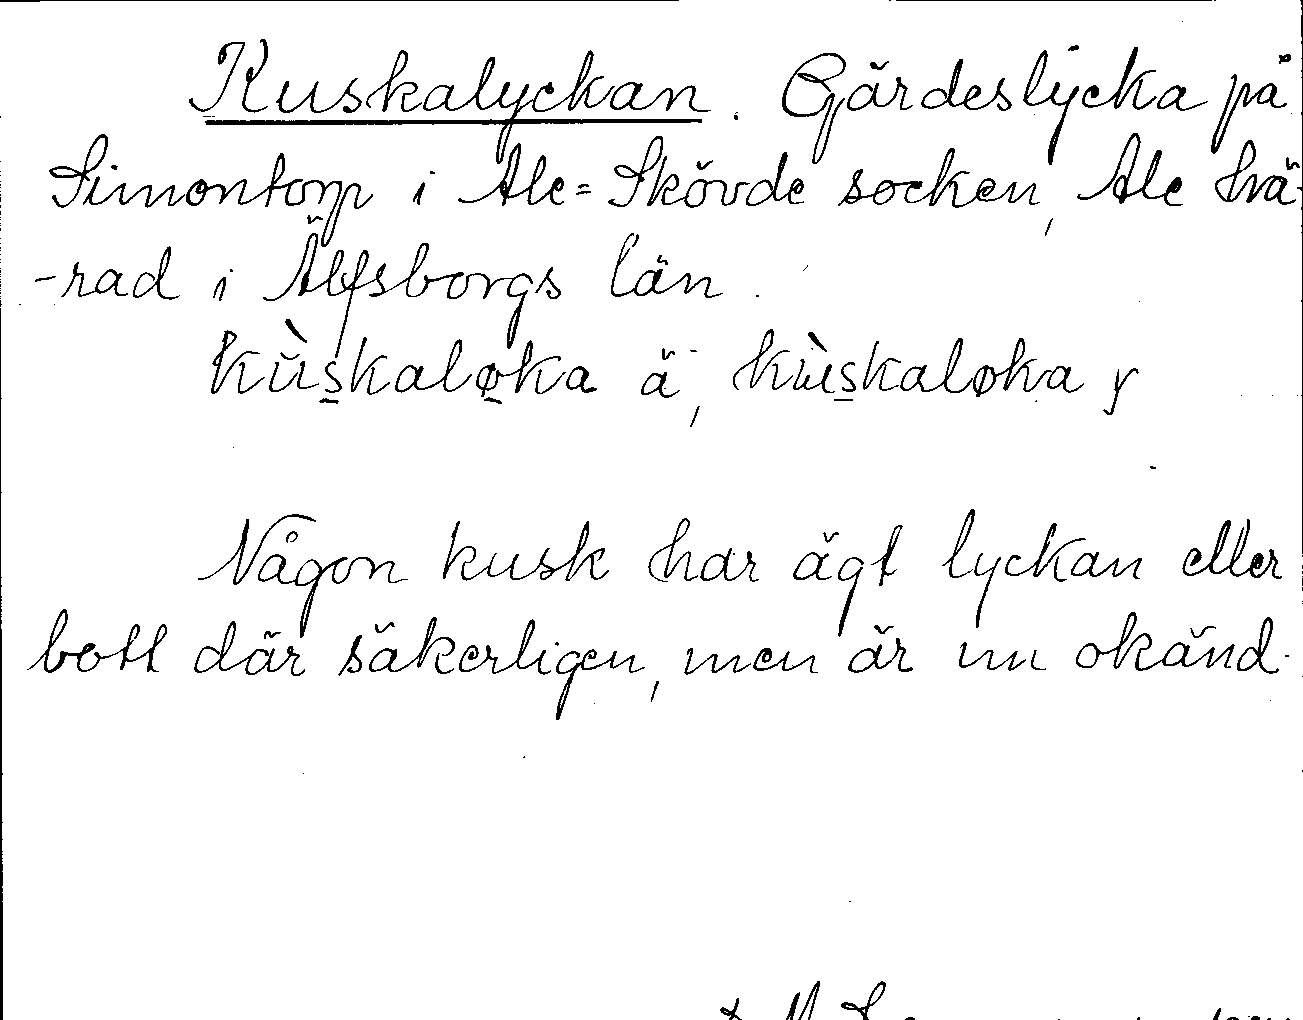 Kuskalyckan. Gärdeslycka på
Simontorp i Ale=Skövde socken, Ale hä-
-rad i Älfsborgs län.
kùskaløka ä, kùskaløka y
Någon kusk har ägt lyckan eller
bott där säkerligen, men är nu okänd.